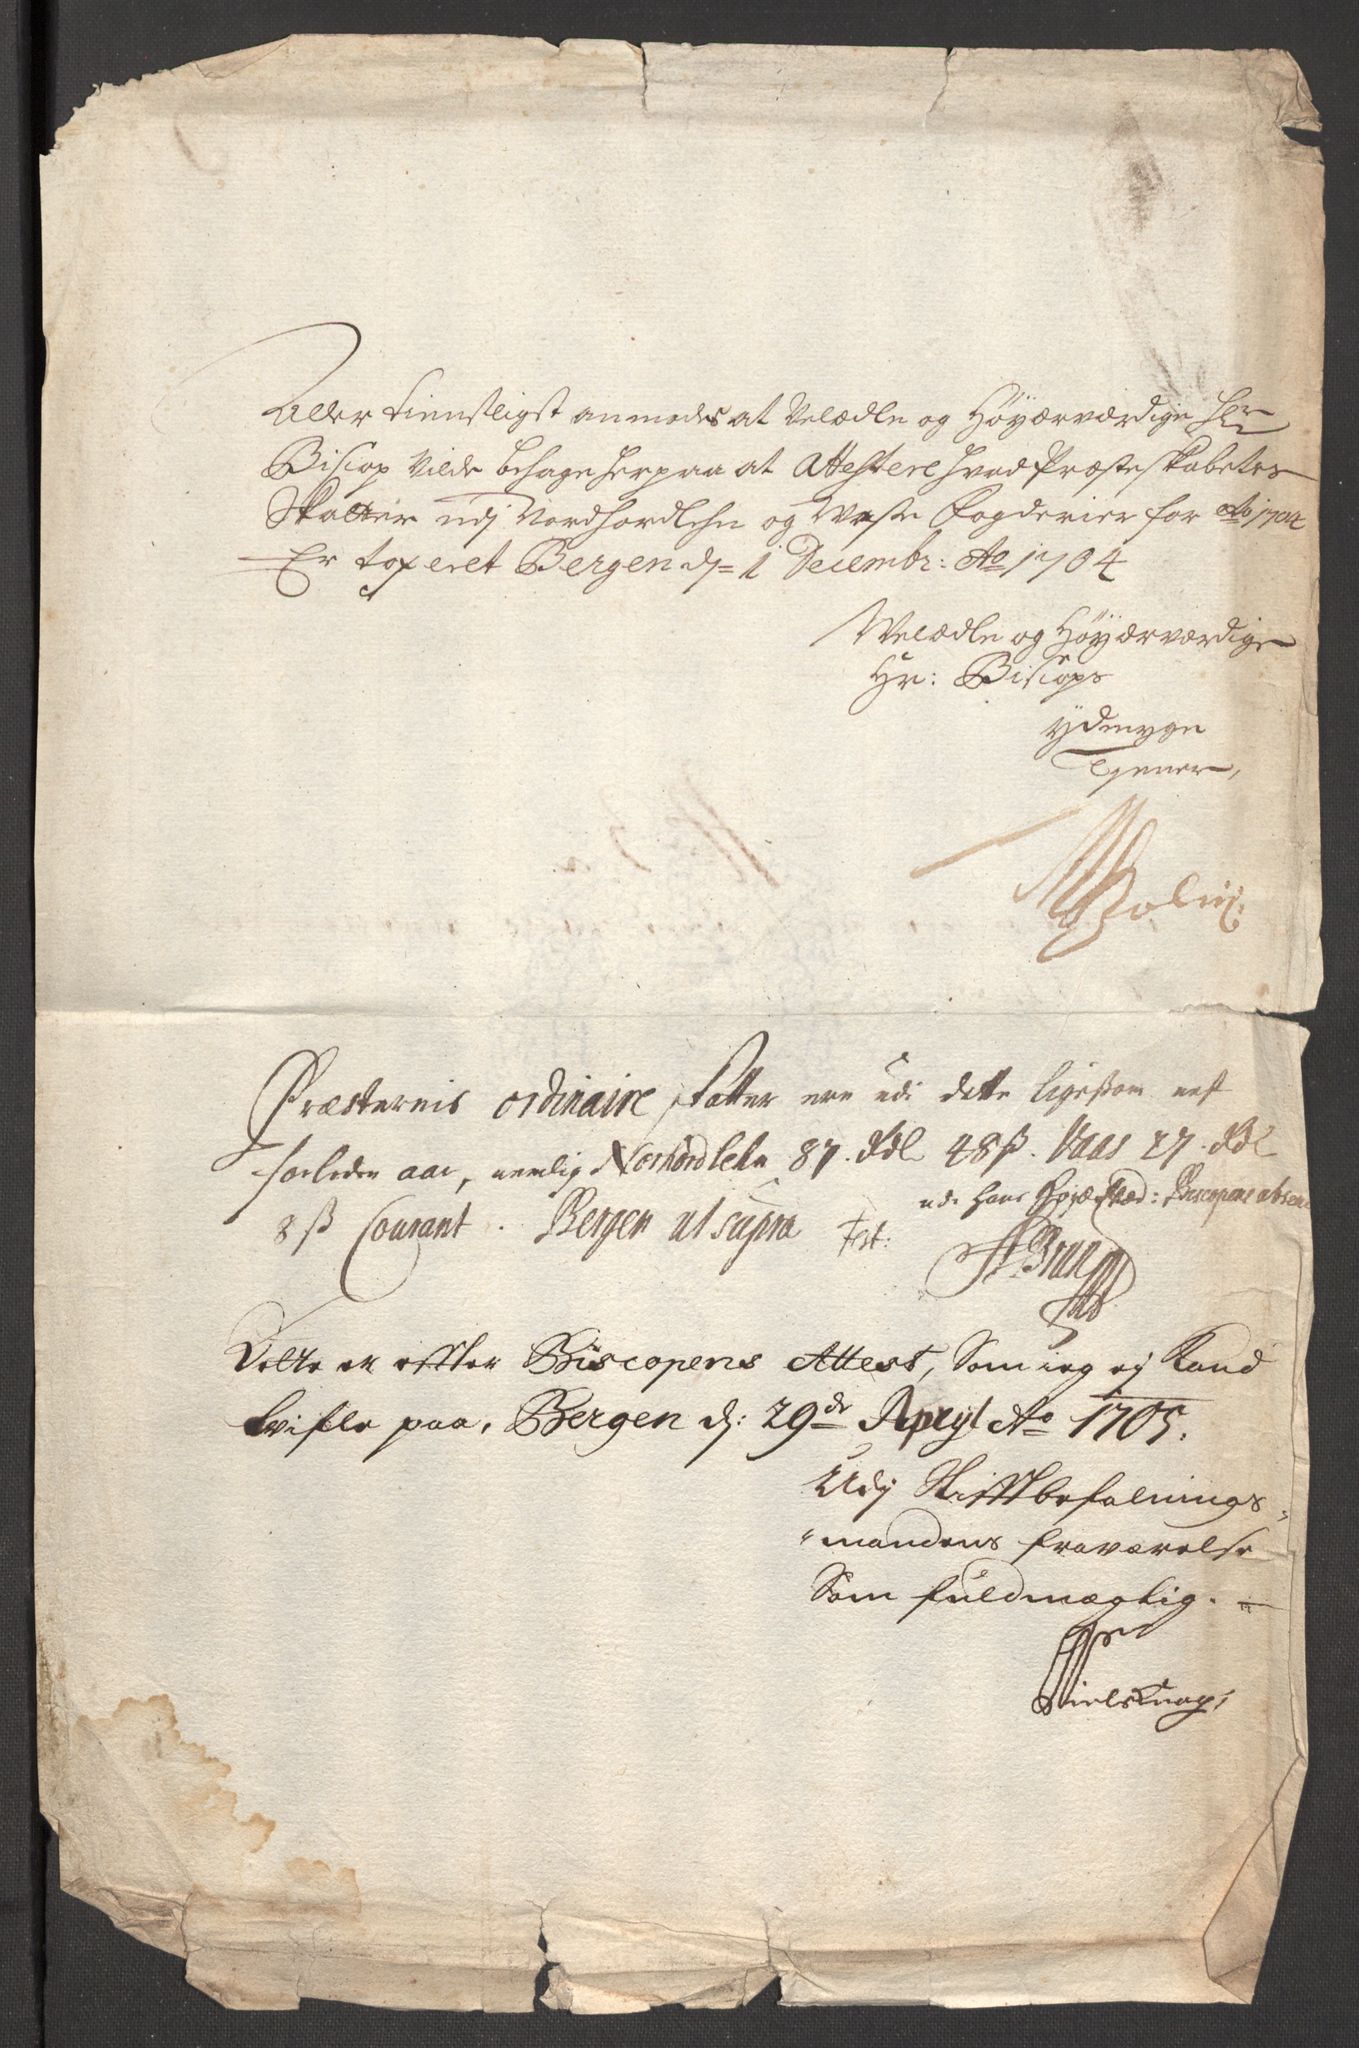 Aller tienstligst anmodes at Velædle og Höyærværdige Hr
Biscop Vilde behage herpaa at Attestere hvad Præsteskabetes
Skatter udj Nordhordlehn og Wosse fogderier for Ao 1704
Er taxeret Bergen dj 1 Decembr: Ao 1704
Welædle og Höyærværdige
Hr: Biscops
ydmyge
Tjener,
Præsternis ordinaire skatter ere udi dette ligesom
forleden aar, nemlig Norhordlehn 87. Rdl 48 ß. Vaas 27. Rdl
8 ß Courant. Bergen ut supra Test: udi hans Biscopens absen
Dette er effter Biscopens Attest, Som ieg ej Kand
tvifle paa, Bergen dj: 29de Apryl Ao 1705.
Udj Stifftbefalnings
mandens fraværelse
Som fuldmægtig.
Niels Knag